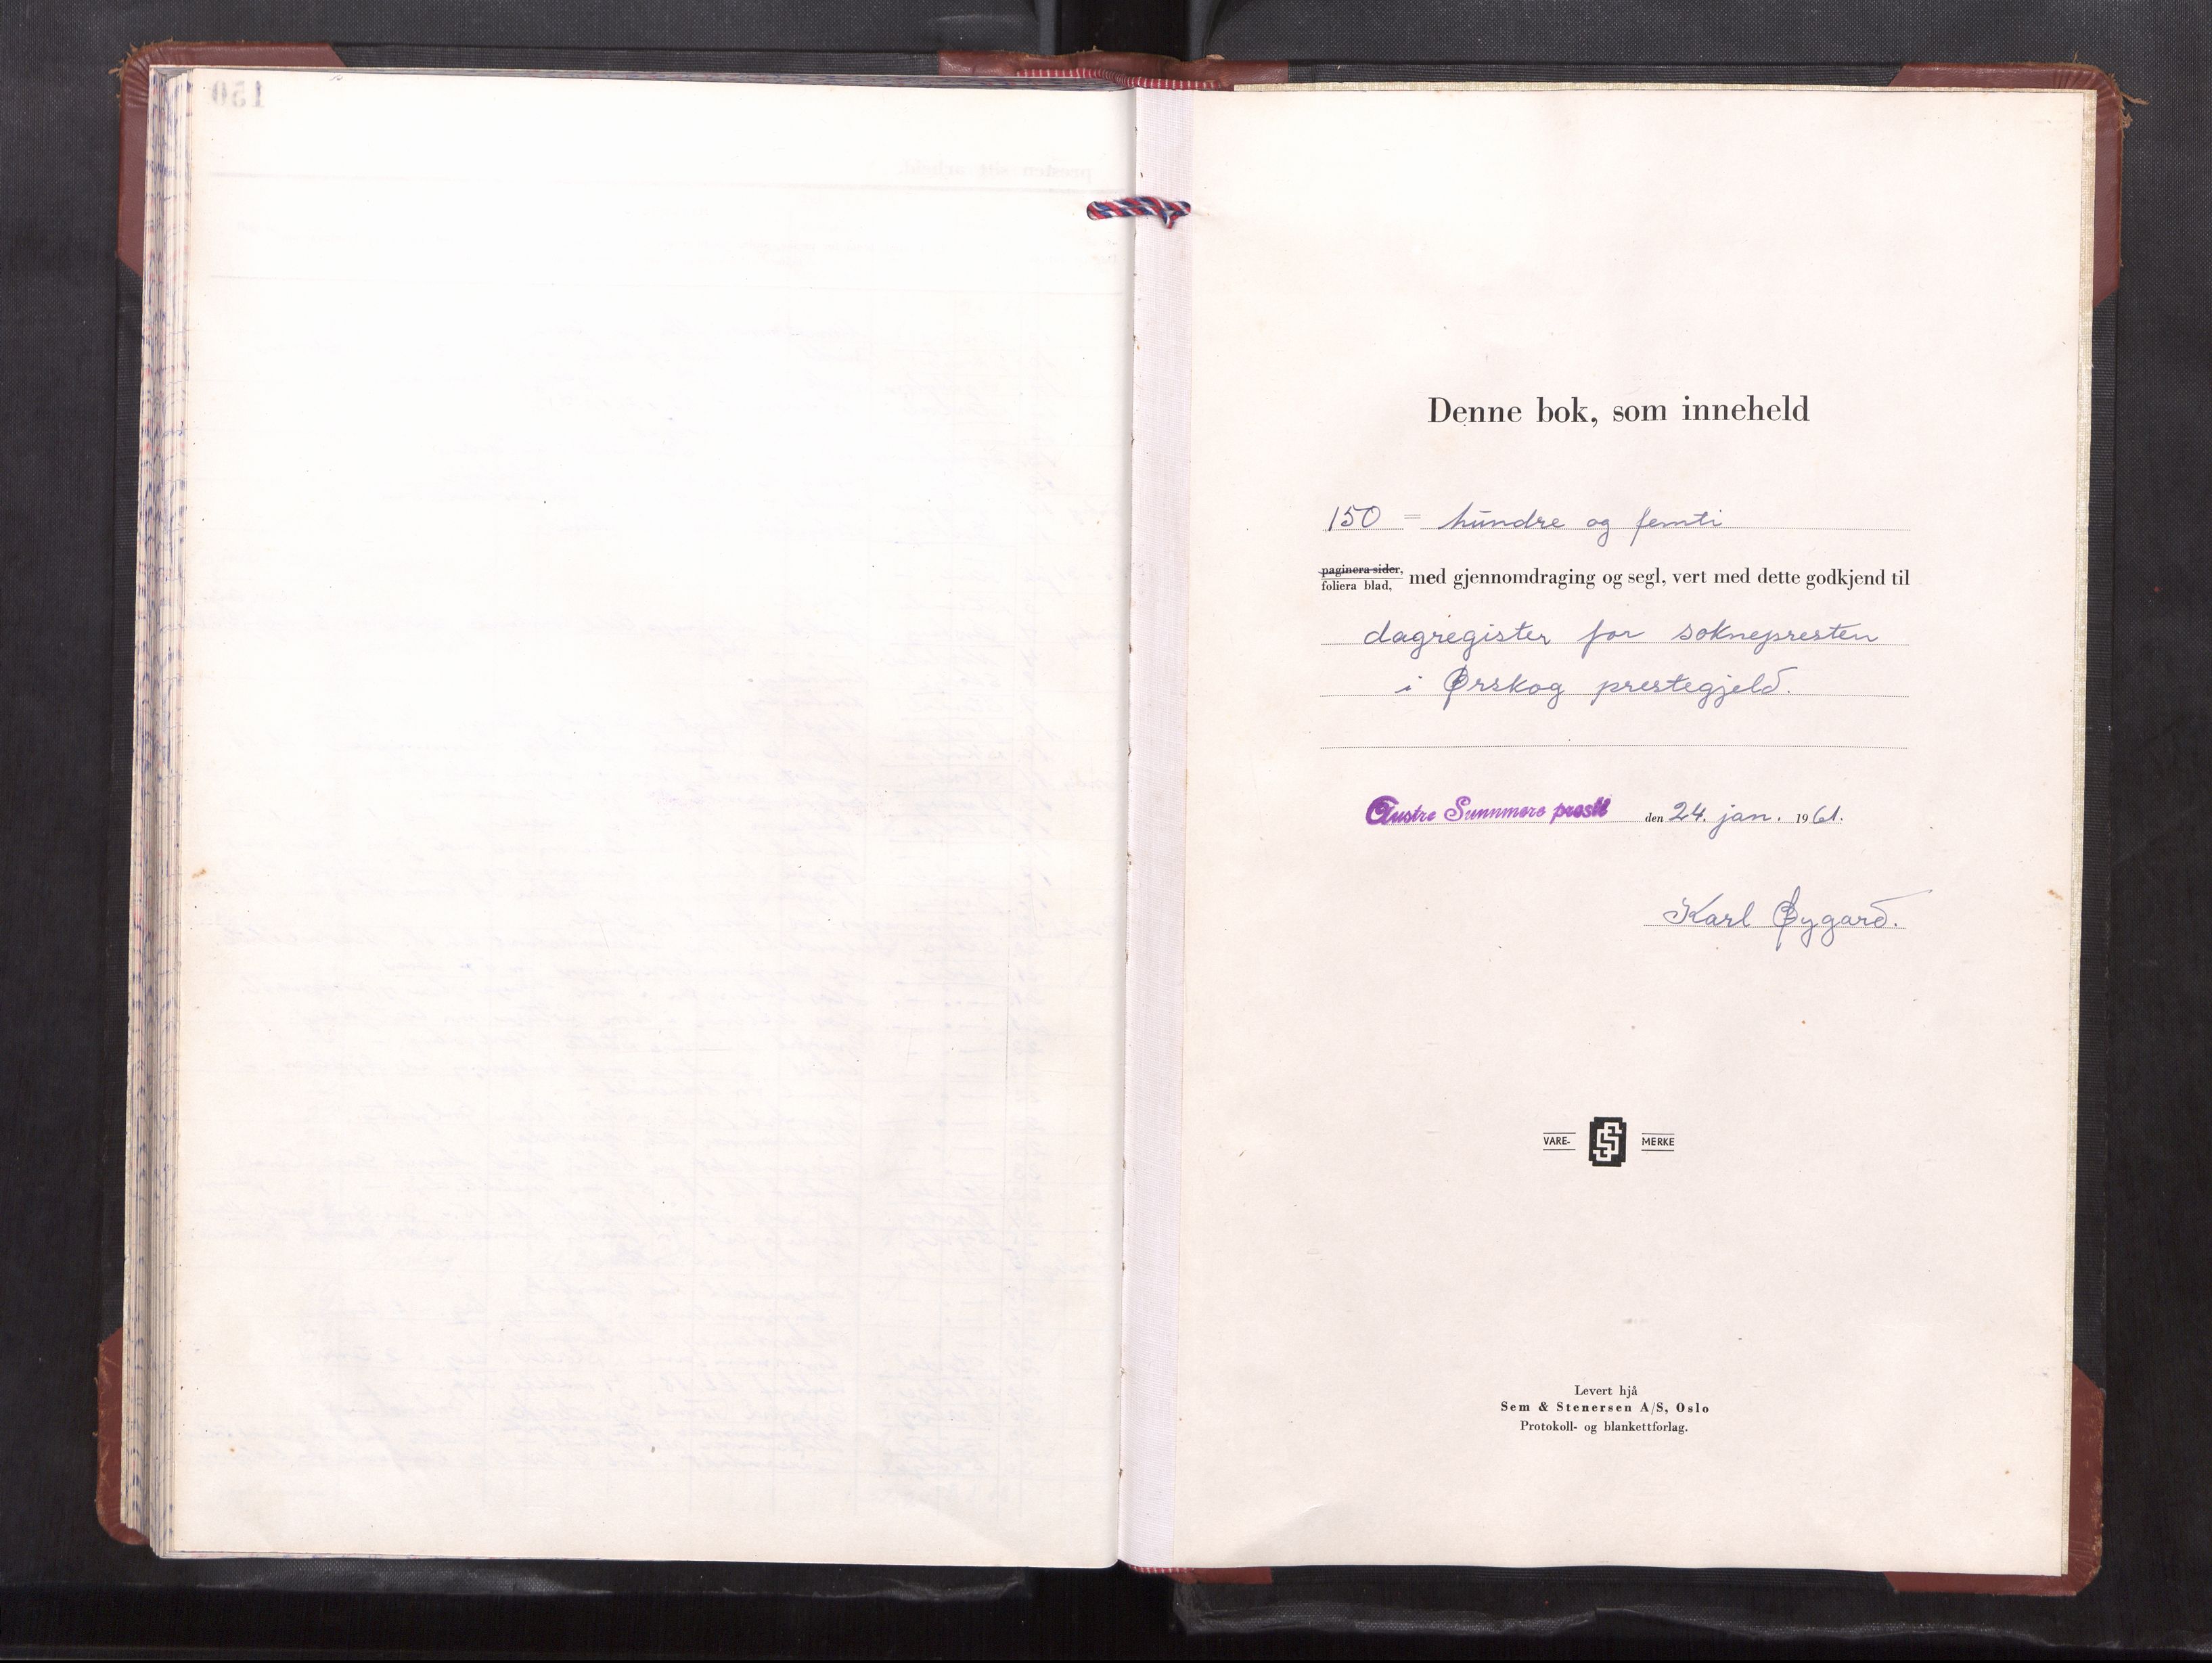 150
Denne bok, som inneheld
150 = hundre og femti
paginera sider,
foliera blad, med gjennomdraging og segl, vert med dette godkjend til
dagregister for soknepresten
i Ørskog prestegjeld.
Austre Sunnmøre prosti den 24. jan. 1961.
Karl Øygard.
VARE- MERKE
Levert hjå
Sem & Stenersen A/S, Oslo
Protokoll- og blankettforlag.